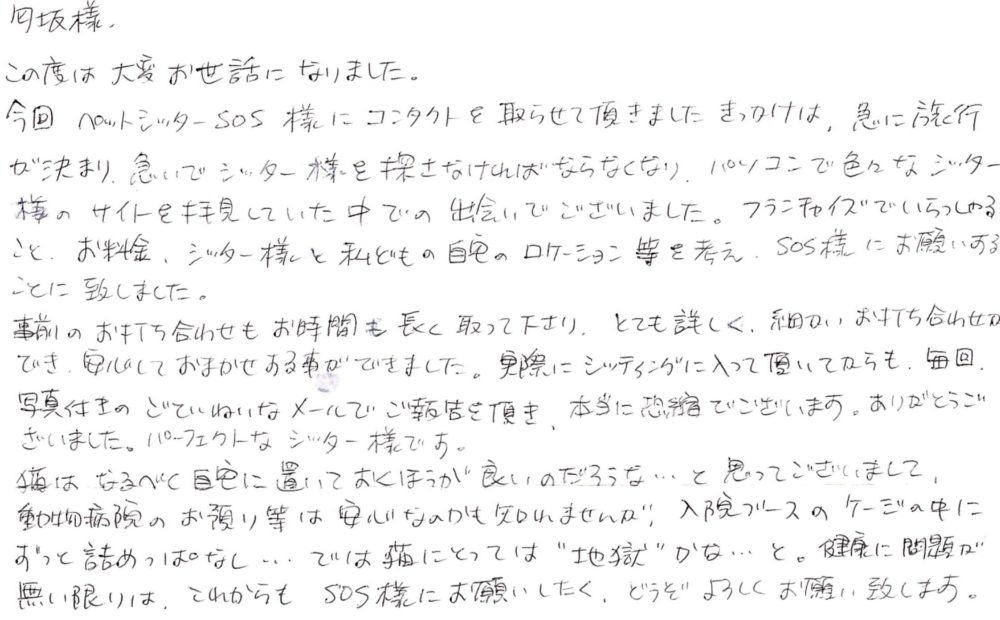 坂様、
この度は大変お世話になりました。
今回 ペットシッターSOS 様にコンタクトを取らせて頂きましたきっかけは、急に旅行
が決まり、急いでシッター様を探さなければならなくなり、パソコンで色々なシッター
様のサイトを拝見していた中での出会いでございました。フランチャイズでいらっしゃる
こと、お料金、シッター様と私どもの自宅のロケーション等を考え、SOS様にお願いする
ことに致しました。
事前のお打ち合わせもお時間も長く取って下さり、とても詳しく、細かいお打ち合わせが
でき、安心しておまかせする事ができました。実際にシッティングに入って頂いてからも、毎回、
写真付きのごていねいなメールでご報告を頂き、本当に恐縮でございます。ありがとうご
ざいました。パーフェクトなシッター様です。
猫はなるべく自宅に置いておくほうが良いのだろうな…と思ってございまして、
動物病院のお預り等は安心なのかも知れませんが、入院ブースのケージの中に
ずっと詰めっぱなし…では猫にとっては"地獄"かな…と。健康に問題が
無い限りは、これからもSOS様にお願いしたく、どうぞよろしくお願い致します。